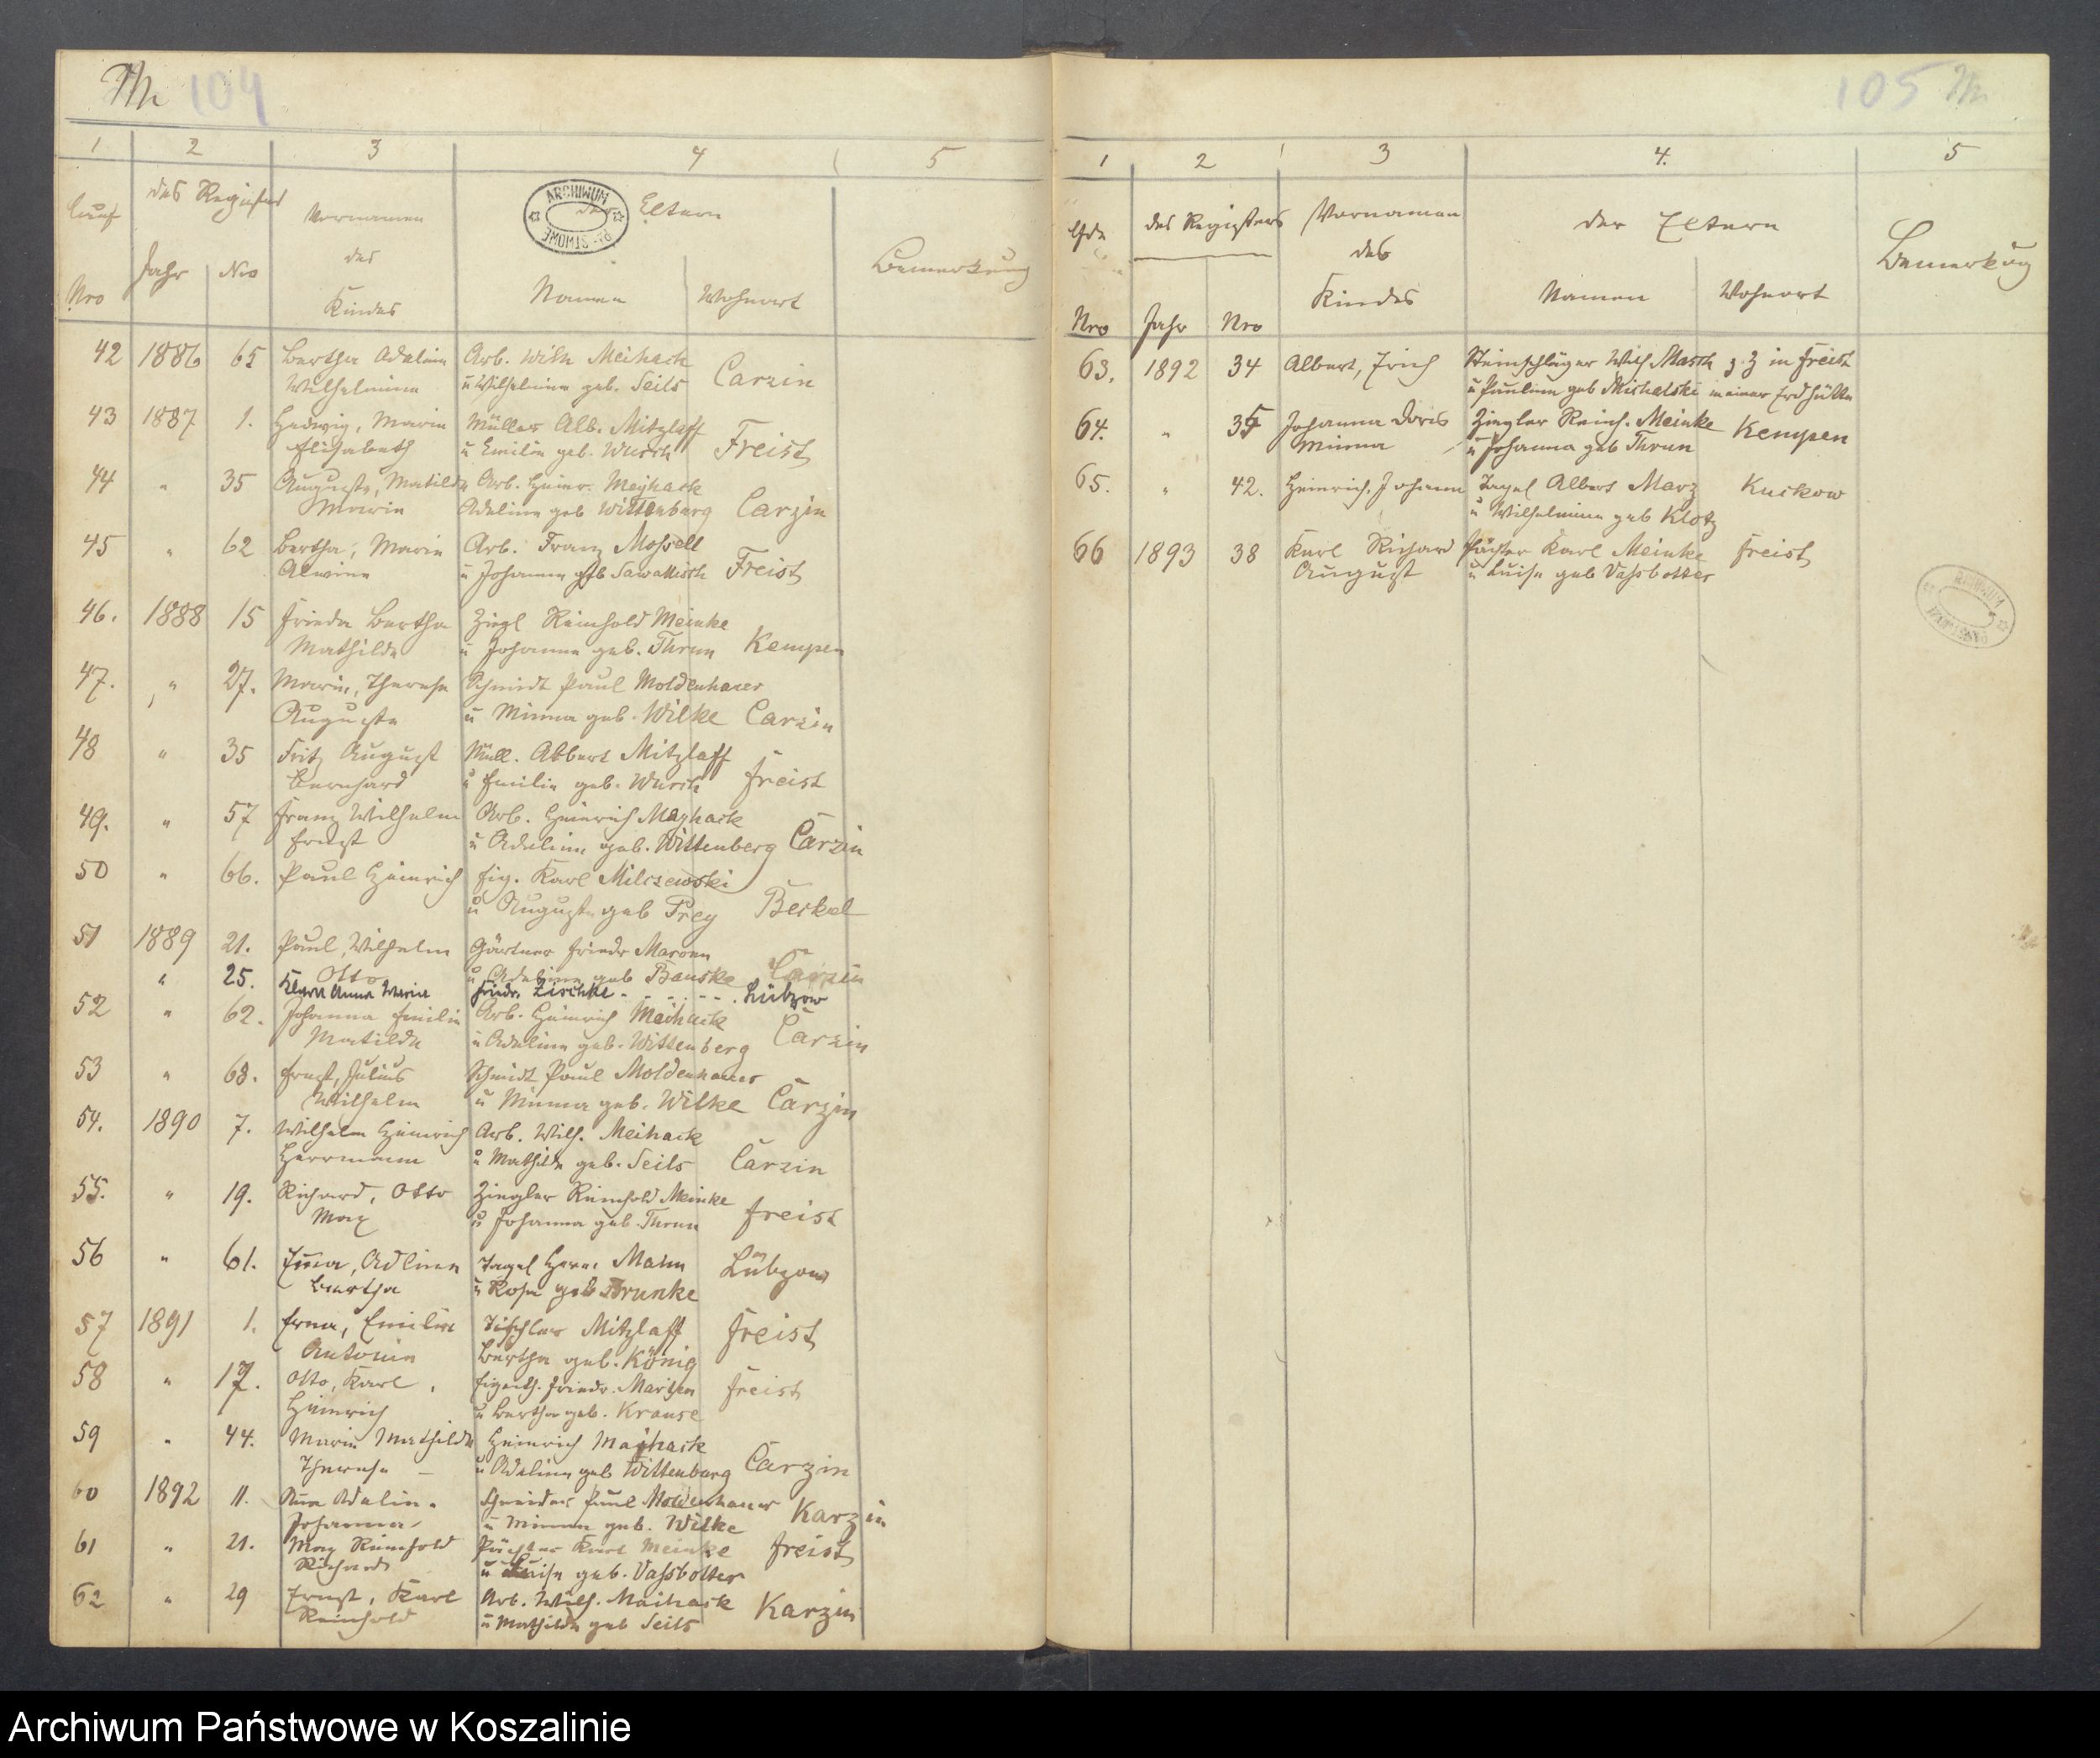 M 104
1 2 3 4 5
des Registers
lauf
Vornamen
der Eltern
ARCHIWUM
des
Bemerkung
Jahr Nro
Nro
Kindes
Namen Wohnort
42 1886 65 Bertha Adeline Arb. Wilh Meihack
Wilhelmine u Wilhelmine geb. Seils Carzin
43 1887 1. Hedwig, Marie Müller Alb. Mitzlaff
Elisabeth u Emilie geb. Wusch Freist
44 " 35 Auguste, Matilde Arb. Heinr. Meyhack
Marie Adeline geb Wittenberg Carzin
45 " 62 Bertha, Marie Arb. Franz
Alwine u Johanna geb Freist
46. 1888 15 Frieda Bertha Ziegl Reinhold Meinke
Mathilde u Johanna geb. Thrun Kempen
47. " 27. Marie, Therese Schmidt Paul Moldenhauer
Auguste u Minna geb. Wilke Carzin
48 " 35 Fritz August Müll. Albert Mitzlaff
Bernhard u Emilie geb. Wusch Freist
49. " 57 Franz Wilhelm Arb. Heinrich Mayhack
Ernst u Adeline geb. Wittenberg Carzin
50 " 66. Paul Heinrich Eig. Karl Milczewski
u Auguste geb Frey Beckel
51 1889 21. Paul, Wilhelm Gärtner Friedr
Otto u Adeline geb Banske Carzin
" 25. Klara Anna Marie Friedr. Zischke - - - - - . Lübzow
52 " 62. Johanna Emilie Arb. Heinrich Meihack
Matilde u Adeline geb. Wittenberg Carzin
53 " 68. Ernst, Julius Schmidt Paul Moldenhauer
Wilhelm u Minna geb. Wilke Carzin
54. 1890 7. Wilhelm Heinrich Arb. Wilh. Meihack
Herrmann u Mathilde geb. Seils Carzin
55. " 19. Richard, Otto Ziegler Reinhold Meinke
Max u Johanna geb. Thrun Freist
56 " 61. Adline Tagel Herm Malm
Bertha u Rosa geb Lübzow
57 1891 1. Erna, Emilie Tischler Mitzlaff Freist
Antonie Bertha geb. König
58 " 17. Otto, Karl, Eigenth. Friedr. Martzen Freist
Heinrich u Bertha geb. Krause
59 " 44. Marie Mathilde Heinrich Mayhack
Therese u Adeline geb Wittenberg Carzin
60 1892 11. Adeline Schneider Paul Moldenhauer Karzin
Johanna u Minna geb. Wilke
61 " 21. Max Reinhold Pächter Karl Meinke Freist
Richard u Luise geb. Vassbotter
62 " 29 Ernst, Karl Arb. Wilh. Maihack Karzin
Reinhold u Mathilde geb Seils
105 M
1 2 3 4. 5
lfde des Registers Vornamen der Eltern
des Bemerkug
Kindes Namen Wohnort
Nro Jahr Nro
63. 1892 34 Albert, Erich Steinschläger Wilh Masch z. Z in Freist
u Pauline geb Michalski in einer Erdhütte
64. " 35 Johanna Doris Ziegler Reinh. Meinke Kempen
Minna u Johanna geb Thrun
65. " 42. Heinrich, Johann Tagel Albert Marz Kuskow
u Wilhelmine geb Klotz
66 1893 38 Karl Richard Pächter Karl Meinke Freist
August u Luise geb Vassbotter
Archiwum Państwowe w Koszalinie